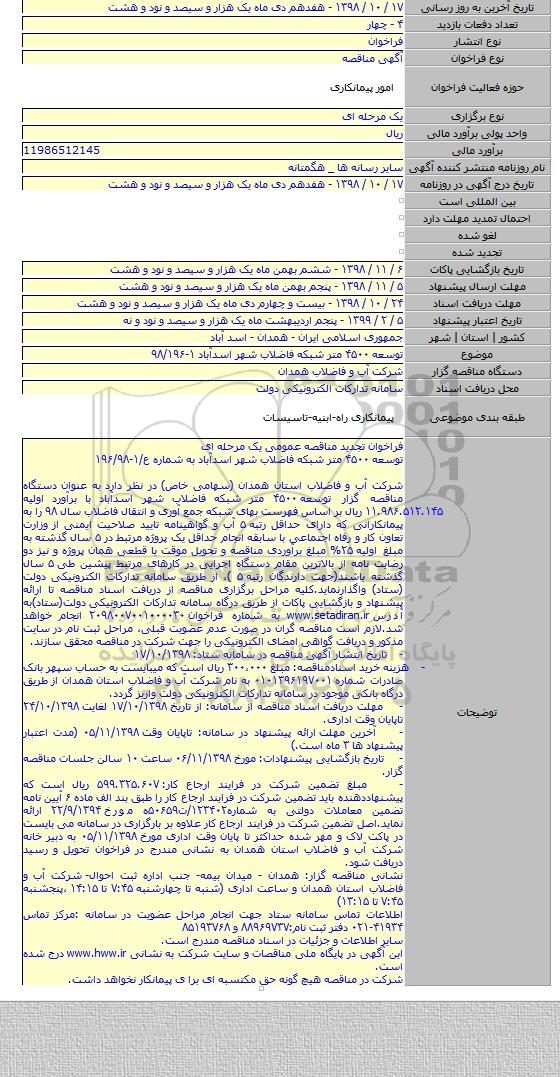 تاریخ آخرین به روز رسانی ۱۷ / ۱۰ / ۱۳۹۸ - هفدهم دی ماه یک هزار و سیصد و نود و هشت
تعداد دفعات بازدید ۴ - چهار
نوع انتشار فراخوان
نوع فراخوان آگهی مناقصه
حوزه فعالیت فراخوان امور پیمانکاری
نوع برگزاری یک مرحله ای
واحد پولی برآورد مالی ریال
برآورد مالی 11986512145
نام روزنامه منتشر کننده آگهی سایر رسانه ها _ هگمتانه
تاریخ درج آگهی در روزنامه ۱۷ / ۱۰ / ۱۳۹۸ - هفدهم دی ماه یک هزار و سیصد و نود و هشت
بین المللی است
احتمال تمدید مهلت دارد
لغو شده
تجدید شده
تاریخ بازگشایی پاکات ۶ / ۱۱ / ۱۳۹۸ - ششم بهمن ماه یک هزار و سیصد و نود و هشت
مهلت ارسال پیشنهاد ۵ / ۱۱ / ۱۳۹۸ - پنجم بهمن ماه یک هزار و سیصد و نود و هشت
مهلت دریافت اسناد ۲۴ / ۱۰ / ۱۳۹۸ - بیست و چهارم دی ماه یک هزار و سیصد و نود و هشت
تاریخ اعتبار پیشنهاد ۵ / ۲ / ۱۳۹۹ - پنجم اردیبهشت ماه یک هزار و سیصد و نود و نه
کشور | استان | شهر جمهوری اسلامی ایران - همدان - اسد آباد
موضوع توسعه ۴۵۰۰ متر شبکه فاضلاب شهر اسدآباد ۱-۹۸/۱۹۶
دستگاه مناقصه گزار شرکت آب و فاضلاب همدان
محل دریافت اسناد سامانه تدارکات الکترونیکی دولت
طبقه بندی موضوعی پیمانکاری راه-ابنیه-تاسیسات
توضیحات
فراخوان تجدید مناقصه عمومی یک مرحله ای
توسعه ۴۵۰۰ متر شبکه فاضلاب شهر اسدآباد به شماره ع/۱-۱۹۶/۹۸
شرکت آب و فاضلاب استان همدان (سهامی خاص) در نظر دارد به عنوان دستگاه
مناقصه گزار توسعه ۴۵۰۰ متر شبکه فاضلاب شهر اسدآباد با برآورد اولیه
۱۱.۹۸۶.۵۱۲.۱۴۵ ریال بر اساس فهرست بهای شبکه جمع آوری و انتقال فاضلاب سال ۹۸ را به
پیمانکارانی که دارای حداقل رتبه ۵ آب و گواهینامه تایید صلاحیت ایمنی از وزارت
تعاون کار و رفاه اجتماعی با سابقه انجام حداقل یک پروژه مرتبط در ۵ سال گذشته به
مبلغ اولیه ۲۵% مبلغ برآوردی مناقصه و تحویل موقت یا قطعی همان پروژه و نیز دو
رضایت نامه از بالاترین مقام دستگاه اجرایی در کارهای مرتبط پیشین طی ۵ سال
گذشته باشند(جهت دارندگان رتبه ۵ )، از طریق سامانه تدارکات الکترونیکی دولت
(ستاد) واگذارنماید.کلیه مراحل برگزاری مناقصه از دریافت اسناد مناقصه تا ارائه
پیشنهاد و بازگشایی پاکات از طریق درگاه سامانه تدارکات الکترونیکی دولت(ستاد)به
آدرس www.setadiran.ir به شماره فراخوان ۲۰۹۸۰۰۷۰۰۱۰۰۰۰۳۰ انجام خواهد
شد.لازم است مناقصه گران در صورت عدم عضویت قبلی، مراحل ثبت نام در سایت
مذکور و دریافت گواهی امضای الکترونیکی را جهت شرکت در مناقصه محقق سازند.
- تاریخ انتشار آگهی مناقصه در سامانه ستاد: ۱۷/۱۰/۱۳۹۸
- هزینه خرید اسنادمناقصه: مبلغ ۳۰۰،۰۰۰ ریال است که میبایست به حساب سپهر بانک
صادرات شماره ۰۱۰۱۳۹۶۱۹۷۰۰۱ به نام شرکت آب و فاضلاب استان همدان از طریق
درگاه بانکی موجود در سامانه تدارکات الکترونیکی دولت واریز گردد.
- مهلت دریافت اسناد مناقصه از سامانه: از تاریخ ۱۷/۱۰/۱۳۹۸ لغایت ۲۴/۱۰/۱۳۹۸
تاپایان وقت اداری.
- آخرین مهلت ارائه پیشنهاد در سامانه: تاپایان وقت ۰۵/۱۱/۱۳۹۸ (مدت اعتبار
پیشنهاد ها ۳ ماه است.)
- تاریخ بازگشایی پیشنهادات: مورخ ۰۶/۱۱/۱۳۹۸ ساعت ۱۰ سالن جلسات مناقصه
گزار.
- مبلغ تضمین شرکت در فرایند ارجاع کار: ۵۹۹.۳۲۵.۶۰۷ ریال است که
پیشنهاددهنده باید تضمین شرکت در فرایند ارجاع کار را طبق بند الف ماده ۶ آیین نامه
تضمین معاملات دولتی به شماره۱۲۳۴۰۲/ت۵۰۶۵۹ه مورخ ۲۲/۹/۱۳۹۴ ارائه
نماید.اصل تضمین شرکت در فرایند ارجاع کار علاوه بر بارگزاری در سامانه می بایست
در پاکت لاک و مهر شده حداکثر تا پایان وقت اداری مورخ ۰۵/۱۱/۱۳۹۸ به دبیر خانه
شرکت آب و فاضلاب استان همدان به نشانی مندرج در فراخوان تحویل و رسید
دریافت شود.
نشانی مناقصه گزار: همدان - میدان بیمه- جنب اداره ثبت احوال- شرکت آب و
فاضلاب استان همدان و ساعت اداری (شنبه تا چهارشنبه ۷:۴۵ تا ۱۴:۱۵ ،پنجشنبه
۷:۴۵ تا ۱۳:۱۵)
اطلاعات تماس سامانه ستاد جهت انجام مراحل عضویت در سامانه :مرکز تماس
۰۲۱-۴۱۹۳۴ دفتر ثبت نام:۸۸۹۶۹۷۳۷ و ۸۵۱۹۳۷۶۸
سایر اطلاعات و جزئیات در اسناد مناقصه مندرج است.
این آگهی در پایگاه ملی مناقصات و سایت شرکت به نشانی www.hww.ir درج شده
است.
شرکت در مناقصه هیچ گونه حق مکتسبه ای برا ی پیمانکار نخواهد داشت.